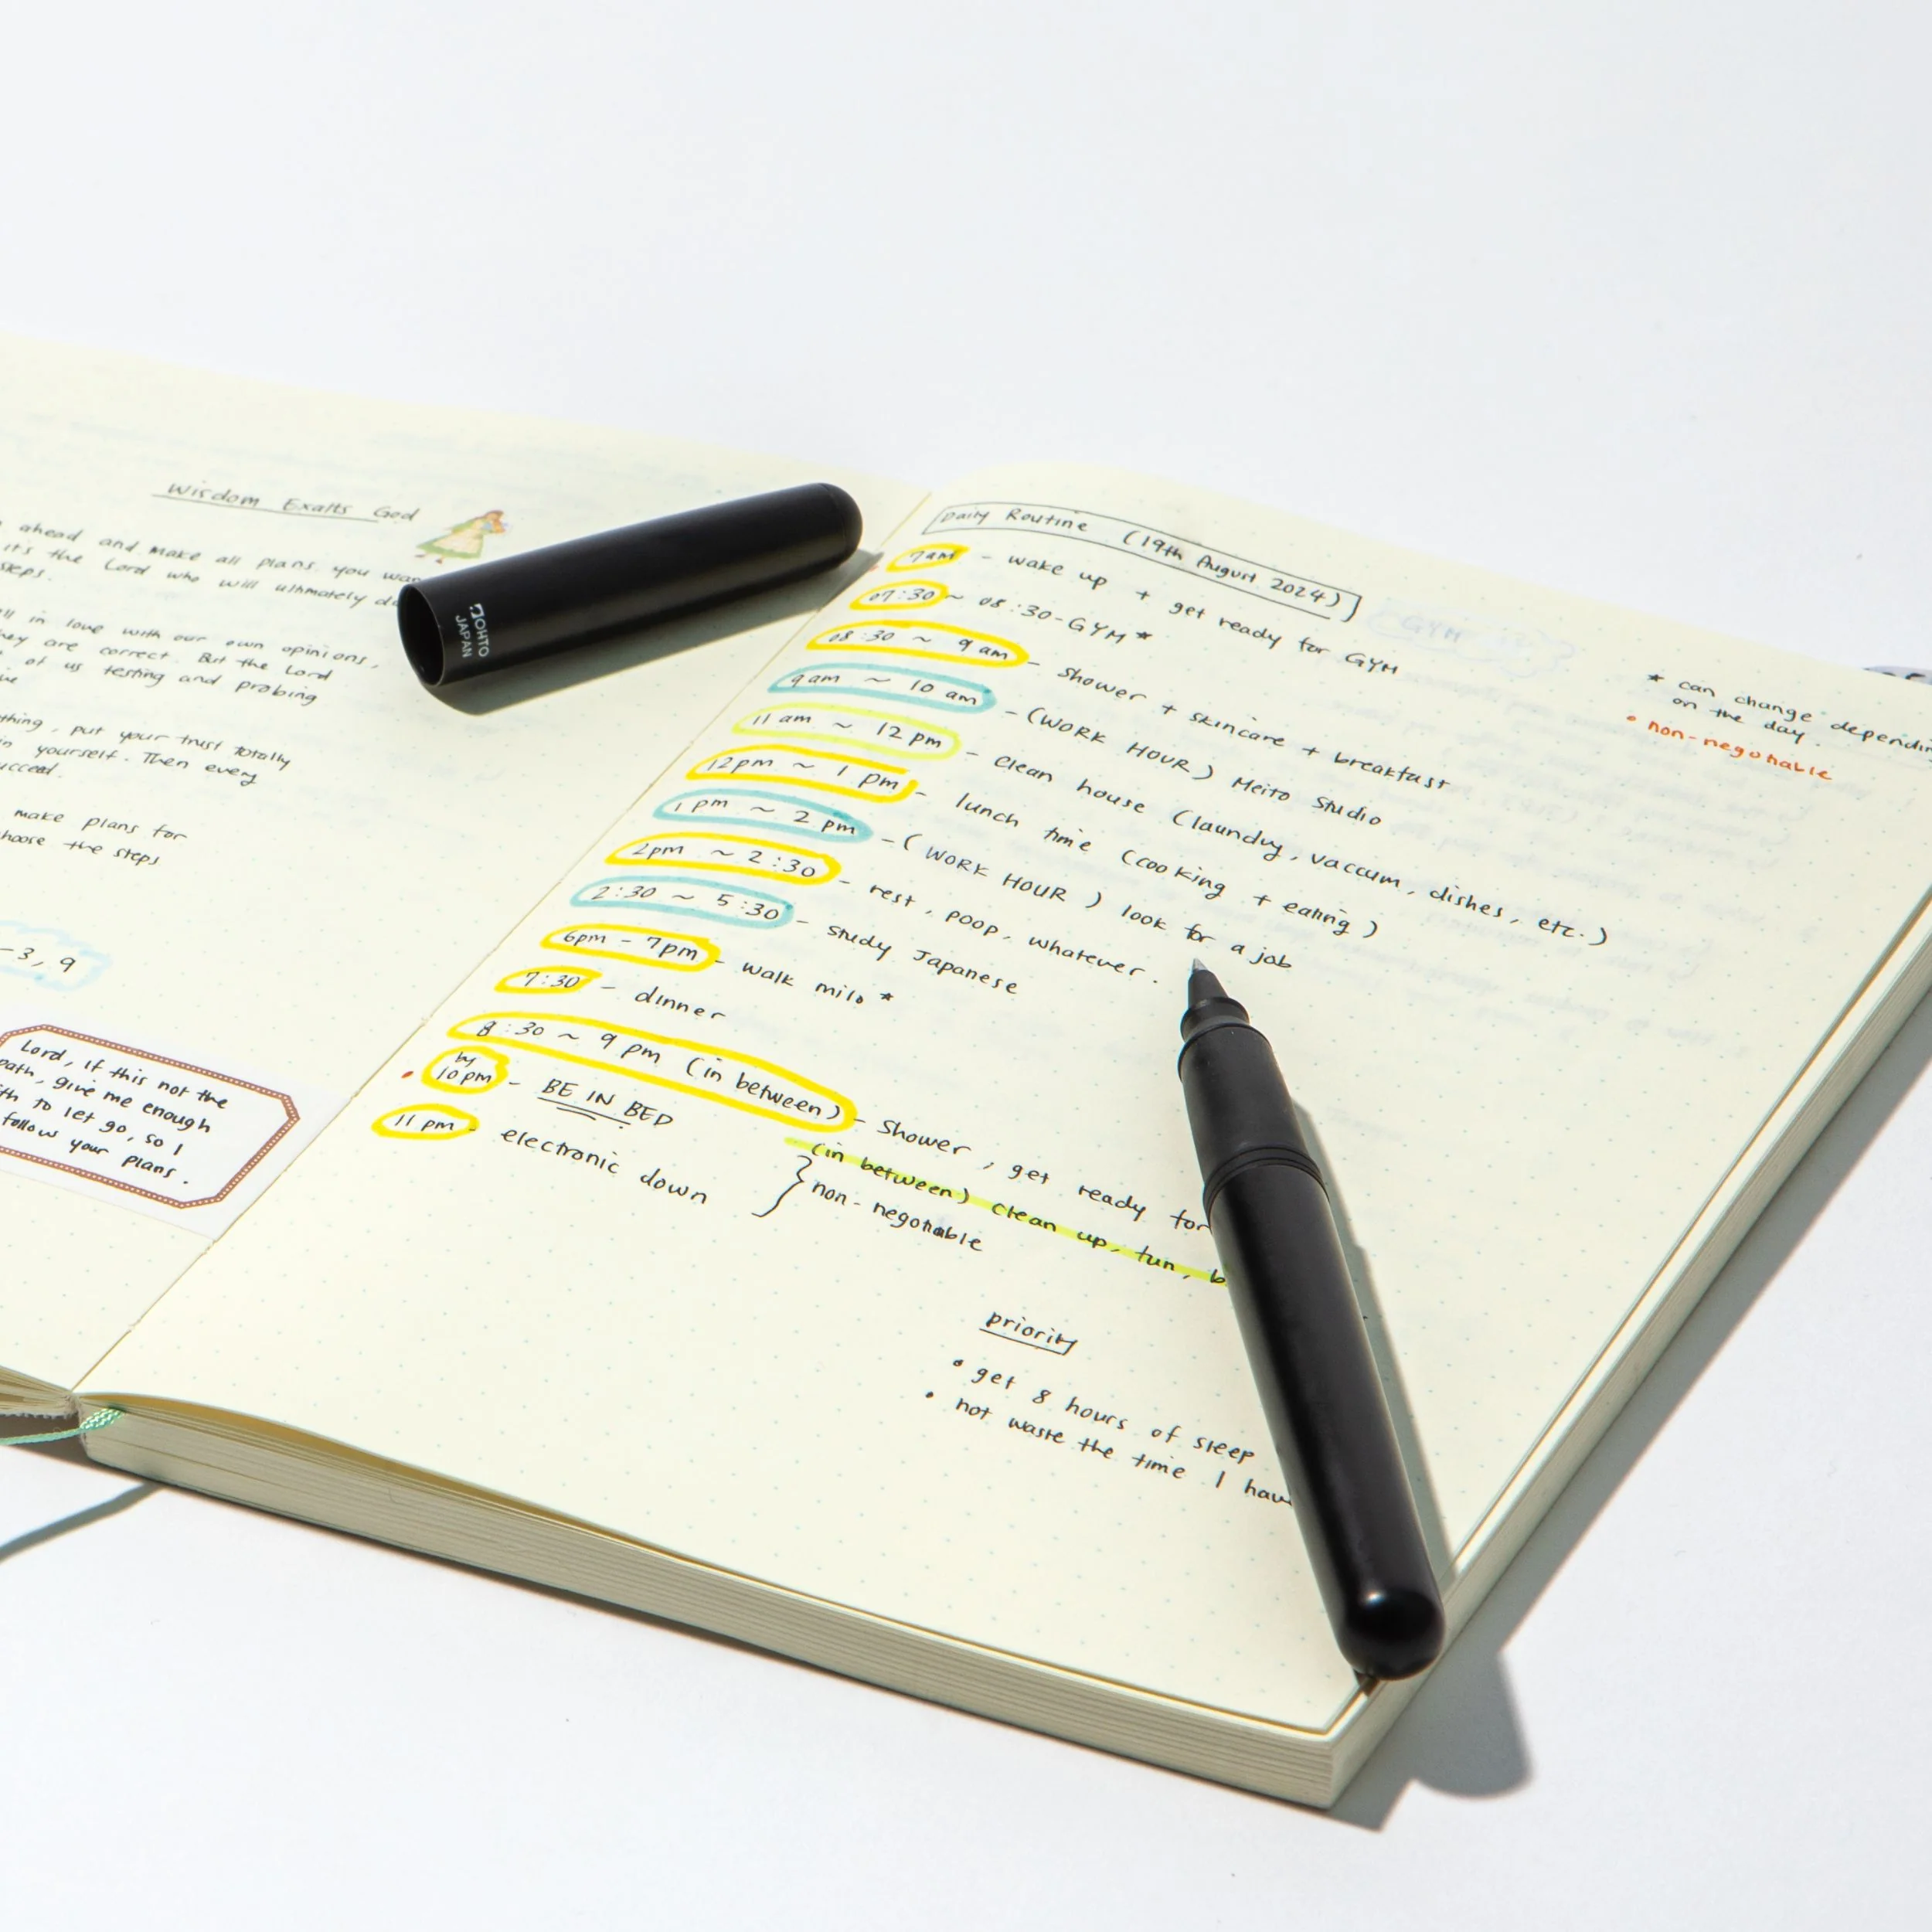 Wisdom Exalts God
ahead and make all plans you
it's the Lord who will ultimately
steps.
in love with our own opinions,
they are correct. But the Lord
of us testing and probing
thing, put your trust totally
in yourself. Then every
succeed.
make plans for
choose the steps
-3, 9
Lord, if this not the
path, give me enough
to let go, so I
follow your plans.
OHTO
JAPAN
Daily Routine (19th August 2024)
7am - wake up + get ready for GYM
07:30 ~ 08:30 - GYM *
08:30 ~ 9 am - Shower + skincare + breakfast
9am ~ 10 am - (WORK HOUR) Meito Studio
11 am ~ 12 pm - Clean house (laundry, vaccum, dishes, etc.)
12pm ~ 1 pm - lunch time (cooking + eating)
1 pm ~ 2 pm - (WORK HOUR) look for a job
2pm ~ 2:30 - rest, poop, whatever.
2:30 ~ 5:30 - study Japanese
6pm - 7pm - walk milo *
7:30 - dinner
8:30 ~ 9 pm (in between) - Shower, get ready for
(in between) clean up,
• by 10pm - BE IN BED
11 pm - electronic down
} non-negotiable
* can change depending
on the day.
• non-negotiable
priority
• get 8 hours of sleep
• not waste the time I have